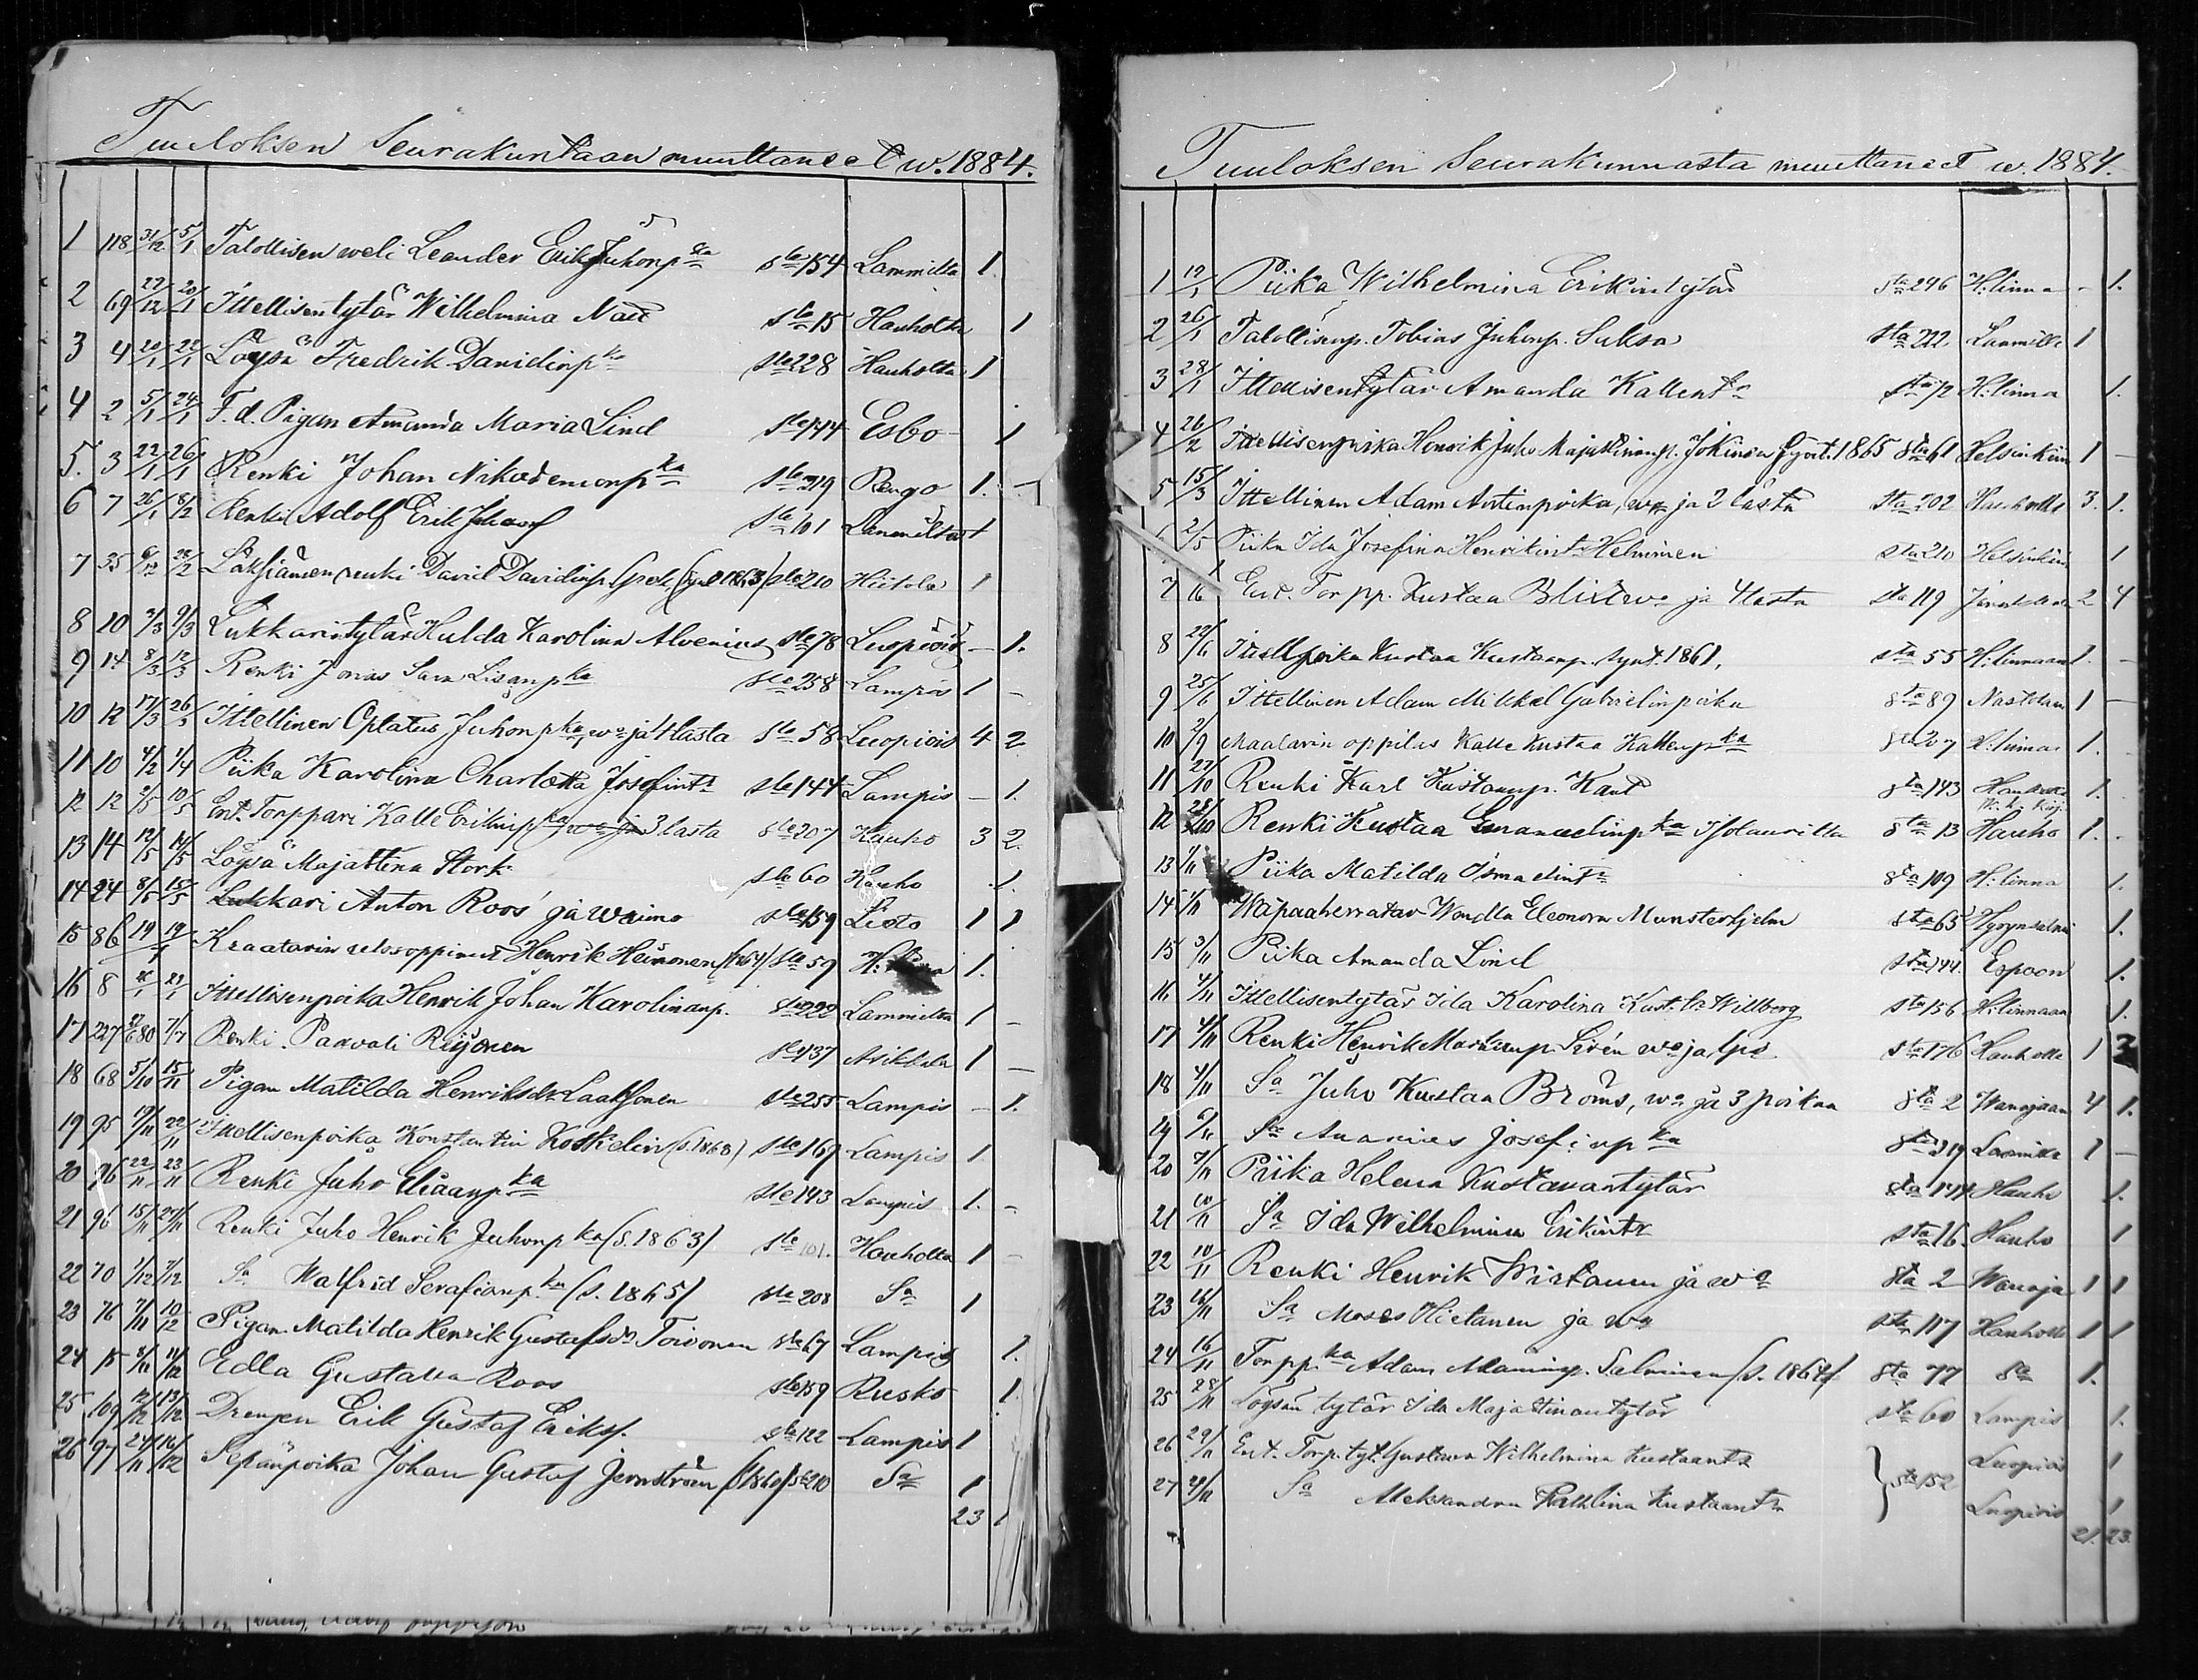 Tuuloksen Seurakuntaan muuttaneet w. 1884.
1 118 31/12 5/1 Talollisen weli Leander Erik Juhonp:ka sta 154 Lammilta 1.
2 69 22/12 20/1 Ittellisentytär Wilhelmina sta 15 Hauholta 1
3 4 20/1 22/1 Löysä Fredrik Davidinp:ka sta 228 Hauholta 1
4 2 5/1 24/1 F. d. Pigan Amanda Maria Lind sta 144 Esbo - 1
5. 3 22/1 26/1 Renki Johan Nikodemonp:ka sta 219 Rengo 1. -
6 7 26/1 8/2 Renki Adolf Erik Johansf sta 101 Lammilta 1
7 35 6/12 28/2 renki David Davidinp. (synt 1863) sta 210 Hiitola 1
8 10 3/3 9/3 Lukkarintytär Hulda Karolina Alvenius sta 78 Luopiois - 1.
9 14 8/3 12/3 Renki Jonas Sara Lisanp:ka sta 258 Lampis 1 -
10 12 17/3 26/3 Ittellinen Optatus Juhonp:ka, wo ja 4 lasta sta 58 Luopiois 4 2
11 10 4/2 1/4 Piika Karolina Charlotta Josefint:r sta 144 Lampis - 1.
12 12 2/5 10/5 Ent. Torppari Kalle Erikinp:ka wo ja 3 lasta sta 207 Hauho 3 2.
13 14 12/5 14/5 Löysä Majastina Stork sta 60 Hauho 1.
14 24 8/5 15/5 Lukkari Anton Roos ja waimo sta 159 Lieto 1 1
15 86 19 19/ Kraatarin ulosoppinut Henrik Heinonen (1864) sta 59 H: 1.
16 8 /1 21/1 Ittellisenpoika Henrik Johan Karolinanp. sta 222 Lammilta 1 -
17 227 80 7/7 Renki Paavali Reijonen sta 137 Asikkala 1 -
18 68 5/10 15/11 Pigan Matilda Henriksdr Laaksonen sta 255 Lampis - 1.
19 95 19/11 22/11 Ittellisenpoika Konstantin Koskelin (s. 1868) sta 169 Lampis 1
20 96 22/11 23/11 Renki Juho Eliaanp:ka sta 143 Lampis 1. -
21 96 15/11 29/11 Renki Juho Henrik Juhonp:ka (s. 1863) sta 101. Hauholta 1 -
22 70 1/12 7/12 Sa Walfrid Serafianp:ka (s. 1865) sta 208 Sa 1
23 76 7/11 10/12 Pigan Matilda Henrik Gustafsdr Toivonen sta 67 Lampis 1.
24 15 8/11 11/12 Edla Gustava Roos sta 159 Rusko 1.
25 109 12/12 13/12 Drengen Erik Gustaf Eriksf. sta 122 Lampis 1
26 97 24/11 16/12 Sepänpoika Johan Gustaf Jernström (1860) sta 210 Sa 1
23 1
Tuuloksen Seurakunnasta muuttaneet w. 1884.
1 12/1 Piika Wilhelmina Erikintytär sta 246 H:linna - 1.
2 26/1 Talollisenp. Tobias Juhonp. Suksa sta 222 Lammille 1
3 28/1 Ittellisentytär Amanda Kallent:r sta 72 H:linna 1.
4 26/2 Ittellisenpoika Henrik Juho Majastinanp. Jokinen synt. 1865 sta 61 Helsinkiin 1 -
5 15/3 Ittellinen Adam Antinpoika, wo ja 2 lasta sta 202 Hauholle 3. 1.
2/5 Piika Ida Josefina Henrikint:r Helminen sta 210 Helsinkiin 1
7 16 Ent. Torpp. Kustaa Blixt wo ja 4 lasta sta 119 2 4
8 22/6 Ittell.poika Kustaa Kustaanp. synt. 1861. sta 55 H:linnaan 1. -
9 25/6 Ittellinen Adam Mikkel Gabrielinpoika sta 89 Nastolaan 1 -
10 2/9 Maalarin oppilas Kalle Kustaa Kallenp:ka sta 207 H:linnas 1.
11 27/10 Renki Karl Kustaanp. sta 143 1.
12 28/10 Renki Kustaa Emanuelinp:ka Isolaurilta sta 13 Hauho 1.
13 1/11 Piika Matilda Ismaelint:r sta 109 H:linna 1.
14 1/11 Wapaaherratar Wendla Eleonora Munsterhjelm sta 65 Hyrynsalmi 1.
15 3/11 Piika Amanda Lind sta 144. Espoon 1.
16 4/11 Ittellisentytär Ida Karolina Kust.tr Willberg sta 156 H:linnaan 1.
17 4/11 Renki Henrik Sirén wo ja lps sta 176 Hauholle 1 3
18 4/11 Sa Juho Kustaa Broms, wo ja 3 poikaa sta 2 Wanajaan 4 1.
19 6/11 Sa Ananias Josefinp:ka sta 219 Lammille 1 -
20 7/11 Piika Helena Kustaavantytär sta 144 Hauho 1.
21 10/11 Sa Ida Wilhelmina Erikintr sta 16. Hauho 1
22 10/11 Renki Henrik Wirtanen ja wo sta 2 Wanaja 1 1
23 16/11 Sa Moses Hietanen ja wo sta 117 Hauholle 1 1
24 16/11 Torpp.ka Adam Salminen (s. 1864) sta 77 Sa 1.
25 28/11 Löysän tytär Ida Majastinantytär sta 60 Lampis 1.
26 29/11 Ent. Torp.tyt. Gustava Wilhelmina Kustaantr } sta 152 Luopiois 1
27 29/11 Sa Aleksandra Kustaantr Luopiois 1
21. 23.